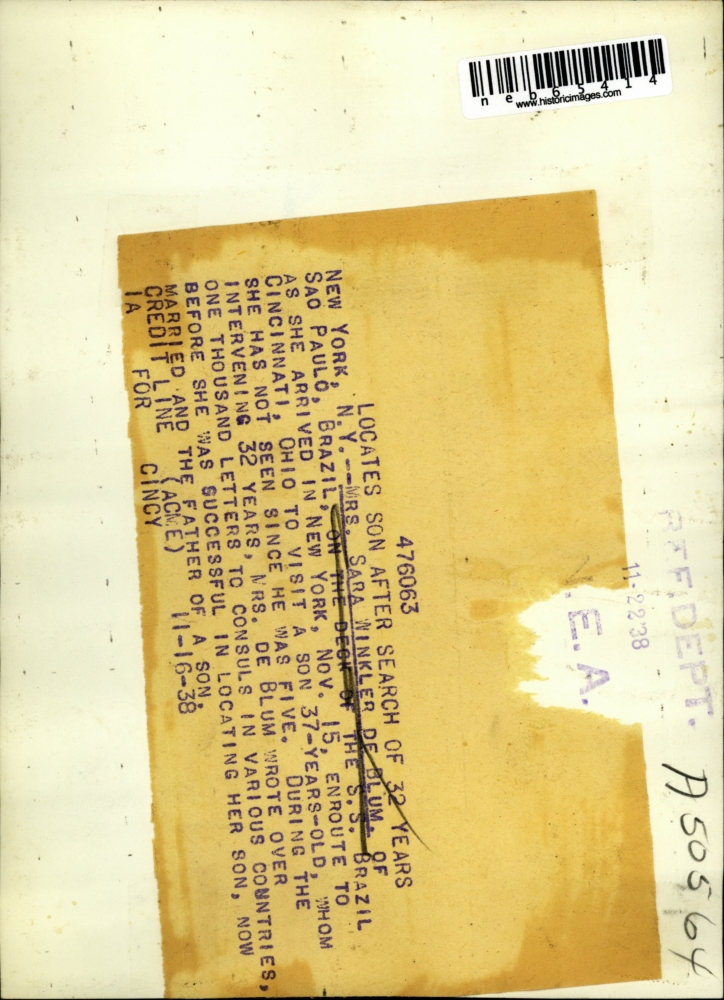 n e b 6 5 4 1 4
www.historicimages.com
REF. DEPT.
11-22 38
N.E.A.
A 50564
476063
LOCATES SON AFTER SEARCH OF 32 YEARS
NEW YORK, N.Y.--MRS. SARA WINKLER DE BLUM. OF
SAO PAULO, BRAZIL, ON THE DECK OF THE S.S. BRAZIL
AS SHE ARRIVED IN NEW YORK, NOV. 15, ENROUTE TO
CINCINNATI, OHIO TO VISIT A SON 37-YEARS-OLD, WHOM
SHE HAS NOT SEEN SINCE HE WAS FIVE. DURING THE
INTERVENING 32 YEARS, MRS. DE BLUM WROTE OVER
ONE THOUSAND LETTERS TO CONSULS IN VARIOUS COUNTRIES,
BEFORE SHE WAS SUCCESSFUL IN LOCATING HER SON, NOW
MARRIED AND THE FATHER OF A SON.
CREDIT LINE (ACME) 11-16-38
IA FOR CINCY